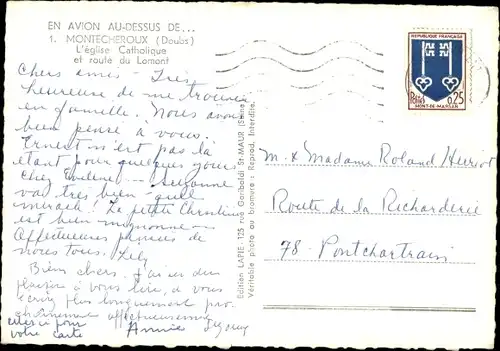 EN AVION AU-DESSUS DE...
1. MONTECHEROUX (Doubs)
L'église Catholique
et route du Lomont
Chers amis - Très
heureuse de me trouver
en famille. Nous avons
bien pensé à vous.
Ernest n'est pas là
étant pour quelques jours
chez - Suzanne
va très bien quel
miracle! La petite Christine
est bien mignonne -
Affectueuses pensées de
nous tous. Lily
Bien chers. J'ai eu du
plaisir à vous lire, à vous
écrire plus longuement pro-
chainement affectueusement
merci pour Annie
votre carte
Edition LAPIE - 125 rue Garibaldi St-MAUR (Seine)
Véritable photo au bromure - Reprod. interdite.
REPUBLIQUE FRANÇAISE
POSTES 0,25
MONT-DE-MARSAN
M & Madame Roland
Route de la Richarderie
78 - Pontchartrain